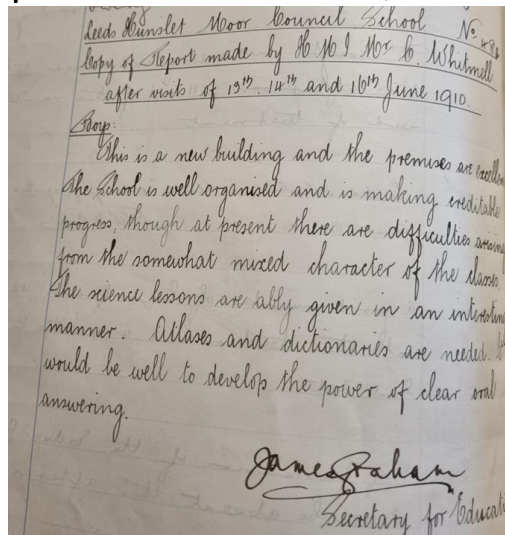 Leeds Hunslet Moor Council School No.
Copy of Report made by H M I Mr C. Whitmell
after visits of 13th. 14th and 16th June 1910.
Boys:
This is a new building and the premises are excellen
The School is well organised and is making creditable
progress, though at present there are difficulties arising
from the somewhat mixed character of the classes.
The science lessons are ably given in an interesting
manner. Atlases and dictionaries are needed.
would be well to develop the power of clear oral
answering.
James Graham
Secretary for Educati